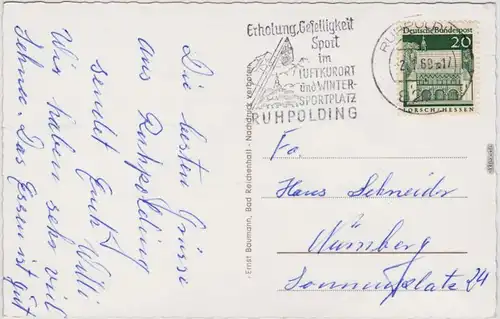 Die besten Grüsse
aus Ruhpolding
sendet Euch Willi
Wir haben sehr viel
Schnee. Das Essen ist gut
- Ernst Baumann, Bad Reichenhall - Nachdruck verboten -
Erholung, Geselligkeit
Sport
im
LUFTKURORT
und WINTER-
SPORTPLATZ
RUHPOLDING
RUHPOLD
68-17
Deutsche Bundespost
20
LORSCH/HESSEN
Fa.
Hans Schneider
Nürnberg
Sonnenplatz 24